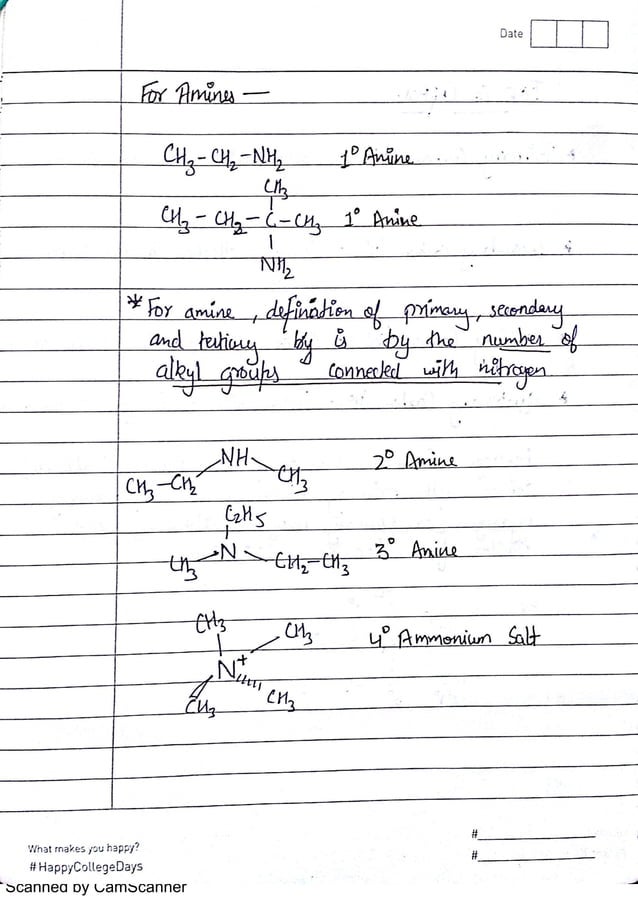 Date
For Amines —
CH3 - CH2 - NH2 1° Amine
CH3
CH3 - CH2 - C - CH3 1° Amine
NH2
* For amine, defination of primary, secondary
and tertiary by is by the number of
alkyl groups connected with nitrogen
NH 2° Amine
CH3 - CH2 CH3
C2H5
CH3 N CH2 - CH3 3° Amine
CH3 CH3 4° Ammonium Salt
N+
CH3 CH3
What makes you happy? #
#HappyCollegeDays #
Scanned by CamScanner